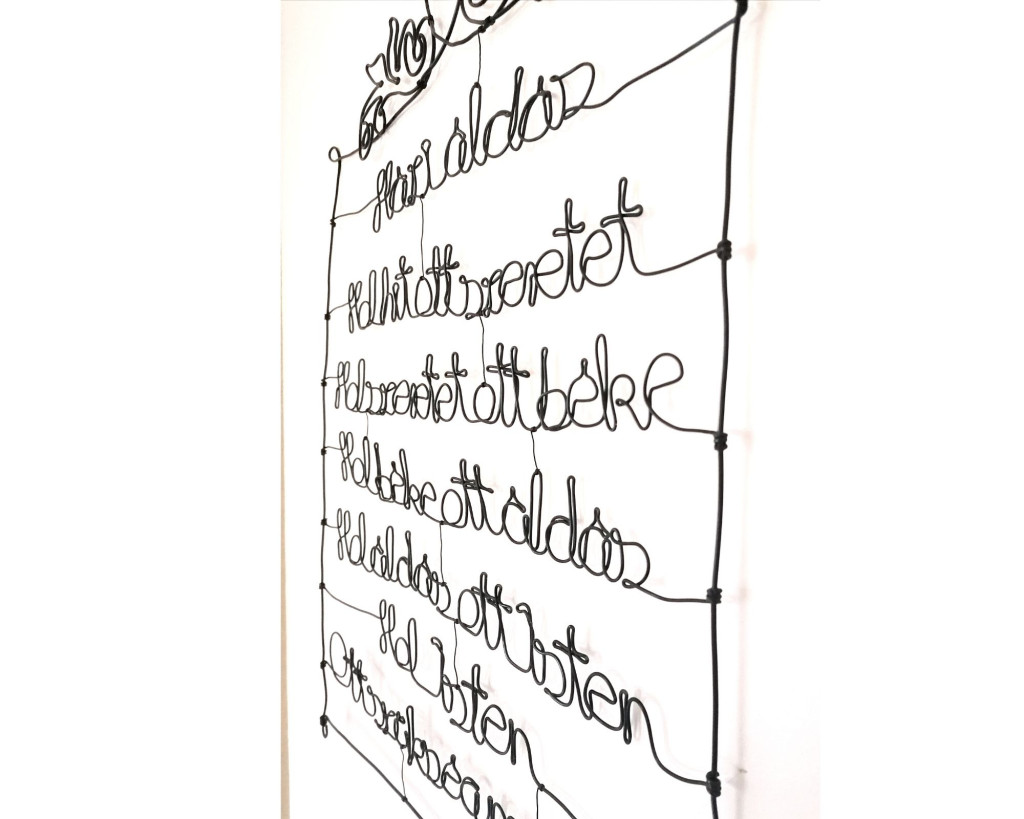 Házi áldás
Hol hit ott szeretet
Hol szeretet ott béke
Hol béke ott áldás
Hol áldás ott Isten
Hol Isten
Ott szükség